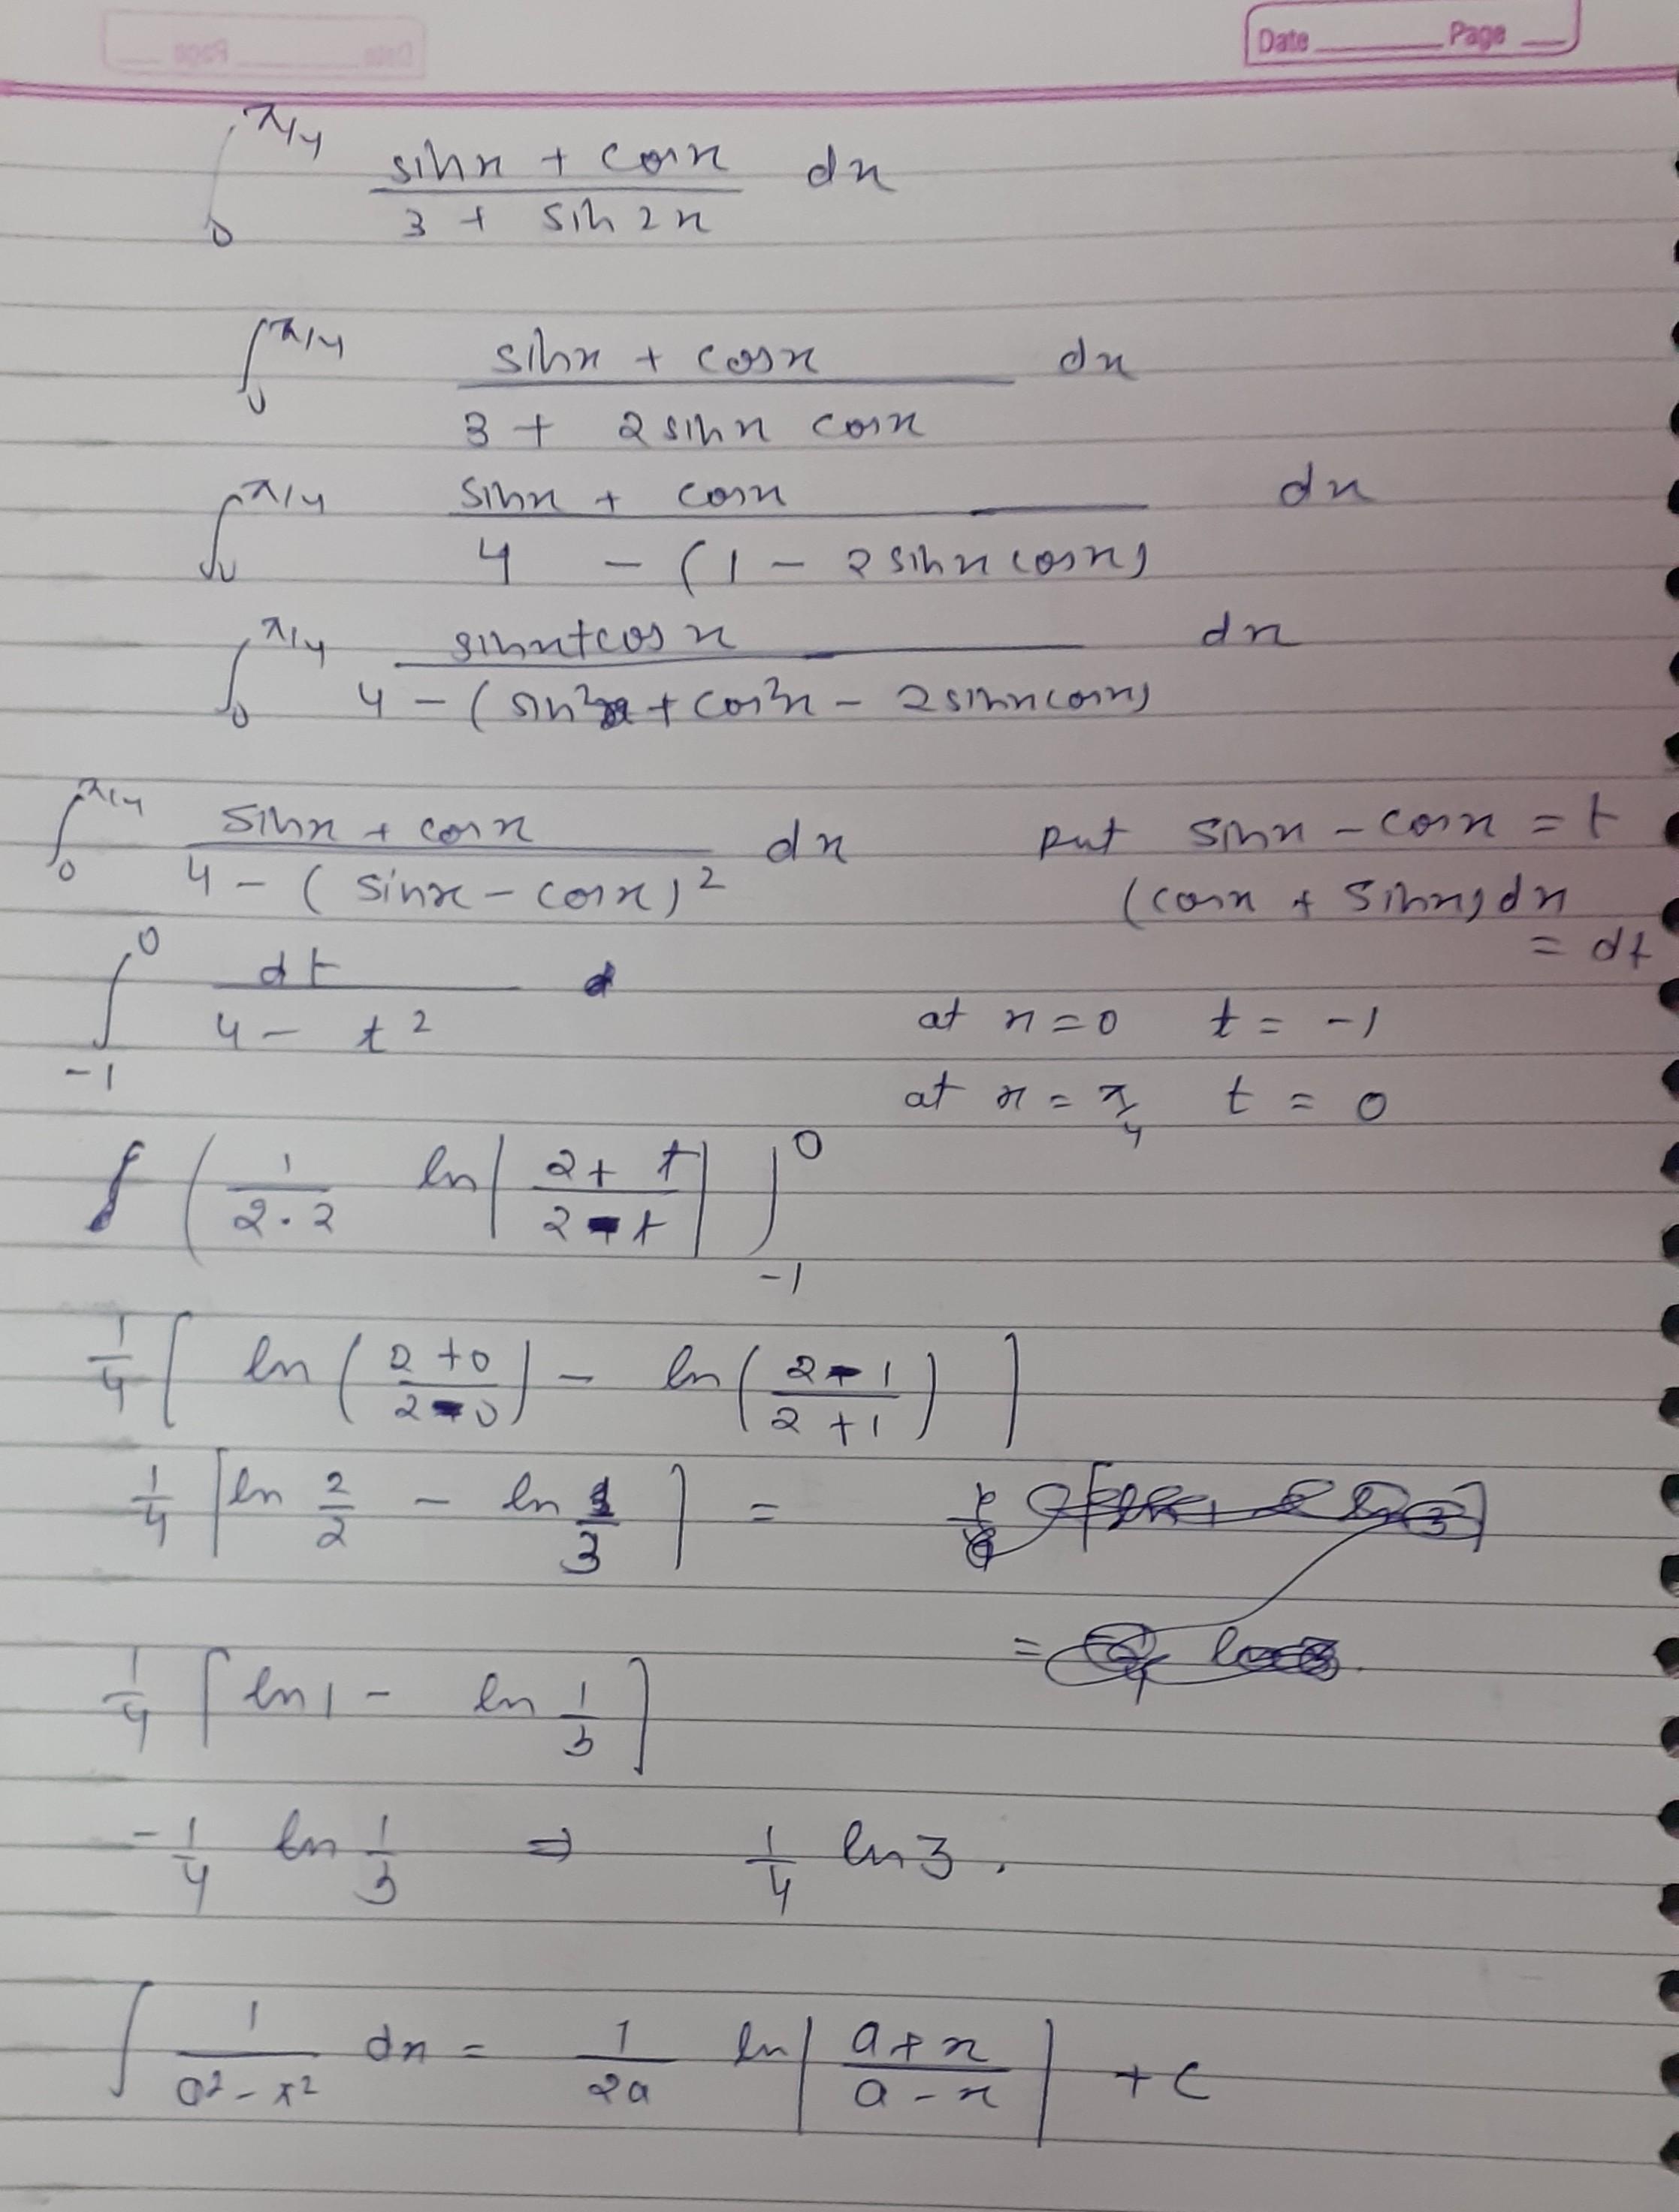 Date Page
∫₀^π/4 sinx + cosx / 3 + sin2x dx
∫₀^π/4 sinx + cosx / 3 + 2sinx cosx dx
∫₀^π/4 sinx + cosx / 4 - (1 - 2sinxcosx) dx
∫₀^π/4 sinx+cosx / 4 - (sin²x + cos²x - 2sinxcosx) dx
∫₀^π/4 sinx + cosx / 4 - (sinx - cosx)² dx put sinx - cosx = t
(cosx + sinx)dx
= dt
∫₋₁⁰ dt / 4 - t²
at x=0 t = -1
at x = π/4 t = 0
( 1/2.2 ln| 2+t / 2-t | )₋₁⁰
1/4 [ ln( 2+0 / 2-0 ) - ln( 2-1 / 2+1 ) ]
1/4 [ ln 2/2 - ln 1/3 ] =
=
1/4 [ ln1 - ln 1/3 ]
-1/4 ln 1/3 ⇒ 1/4 ln3.
∫ 1 / a² - x² dx = 1/2a ln| a+x / a-x | + c